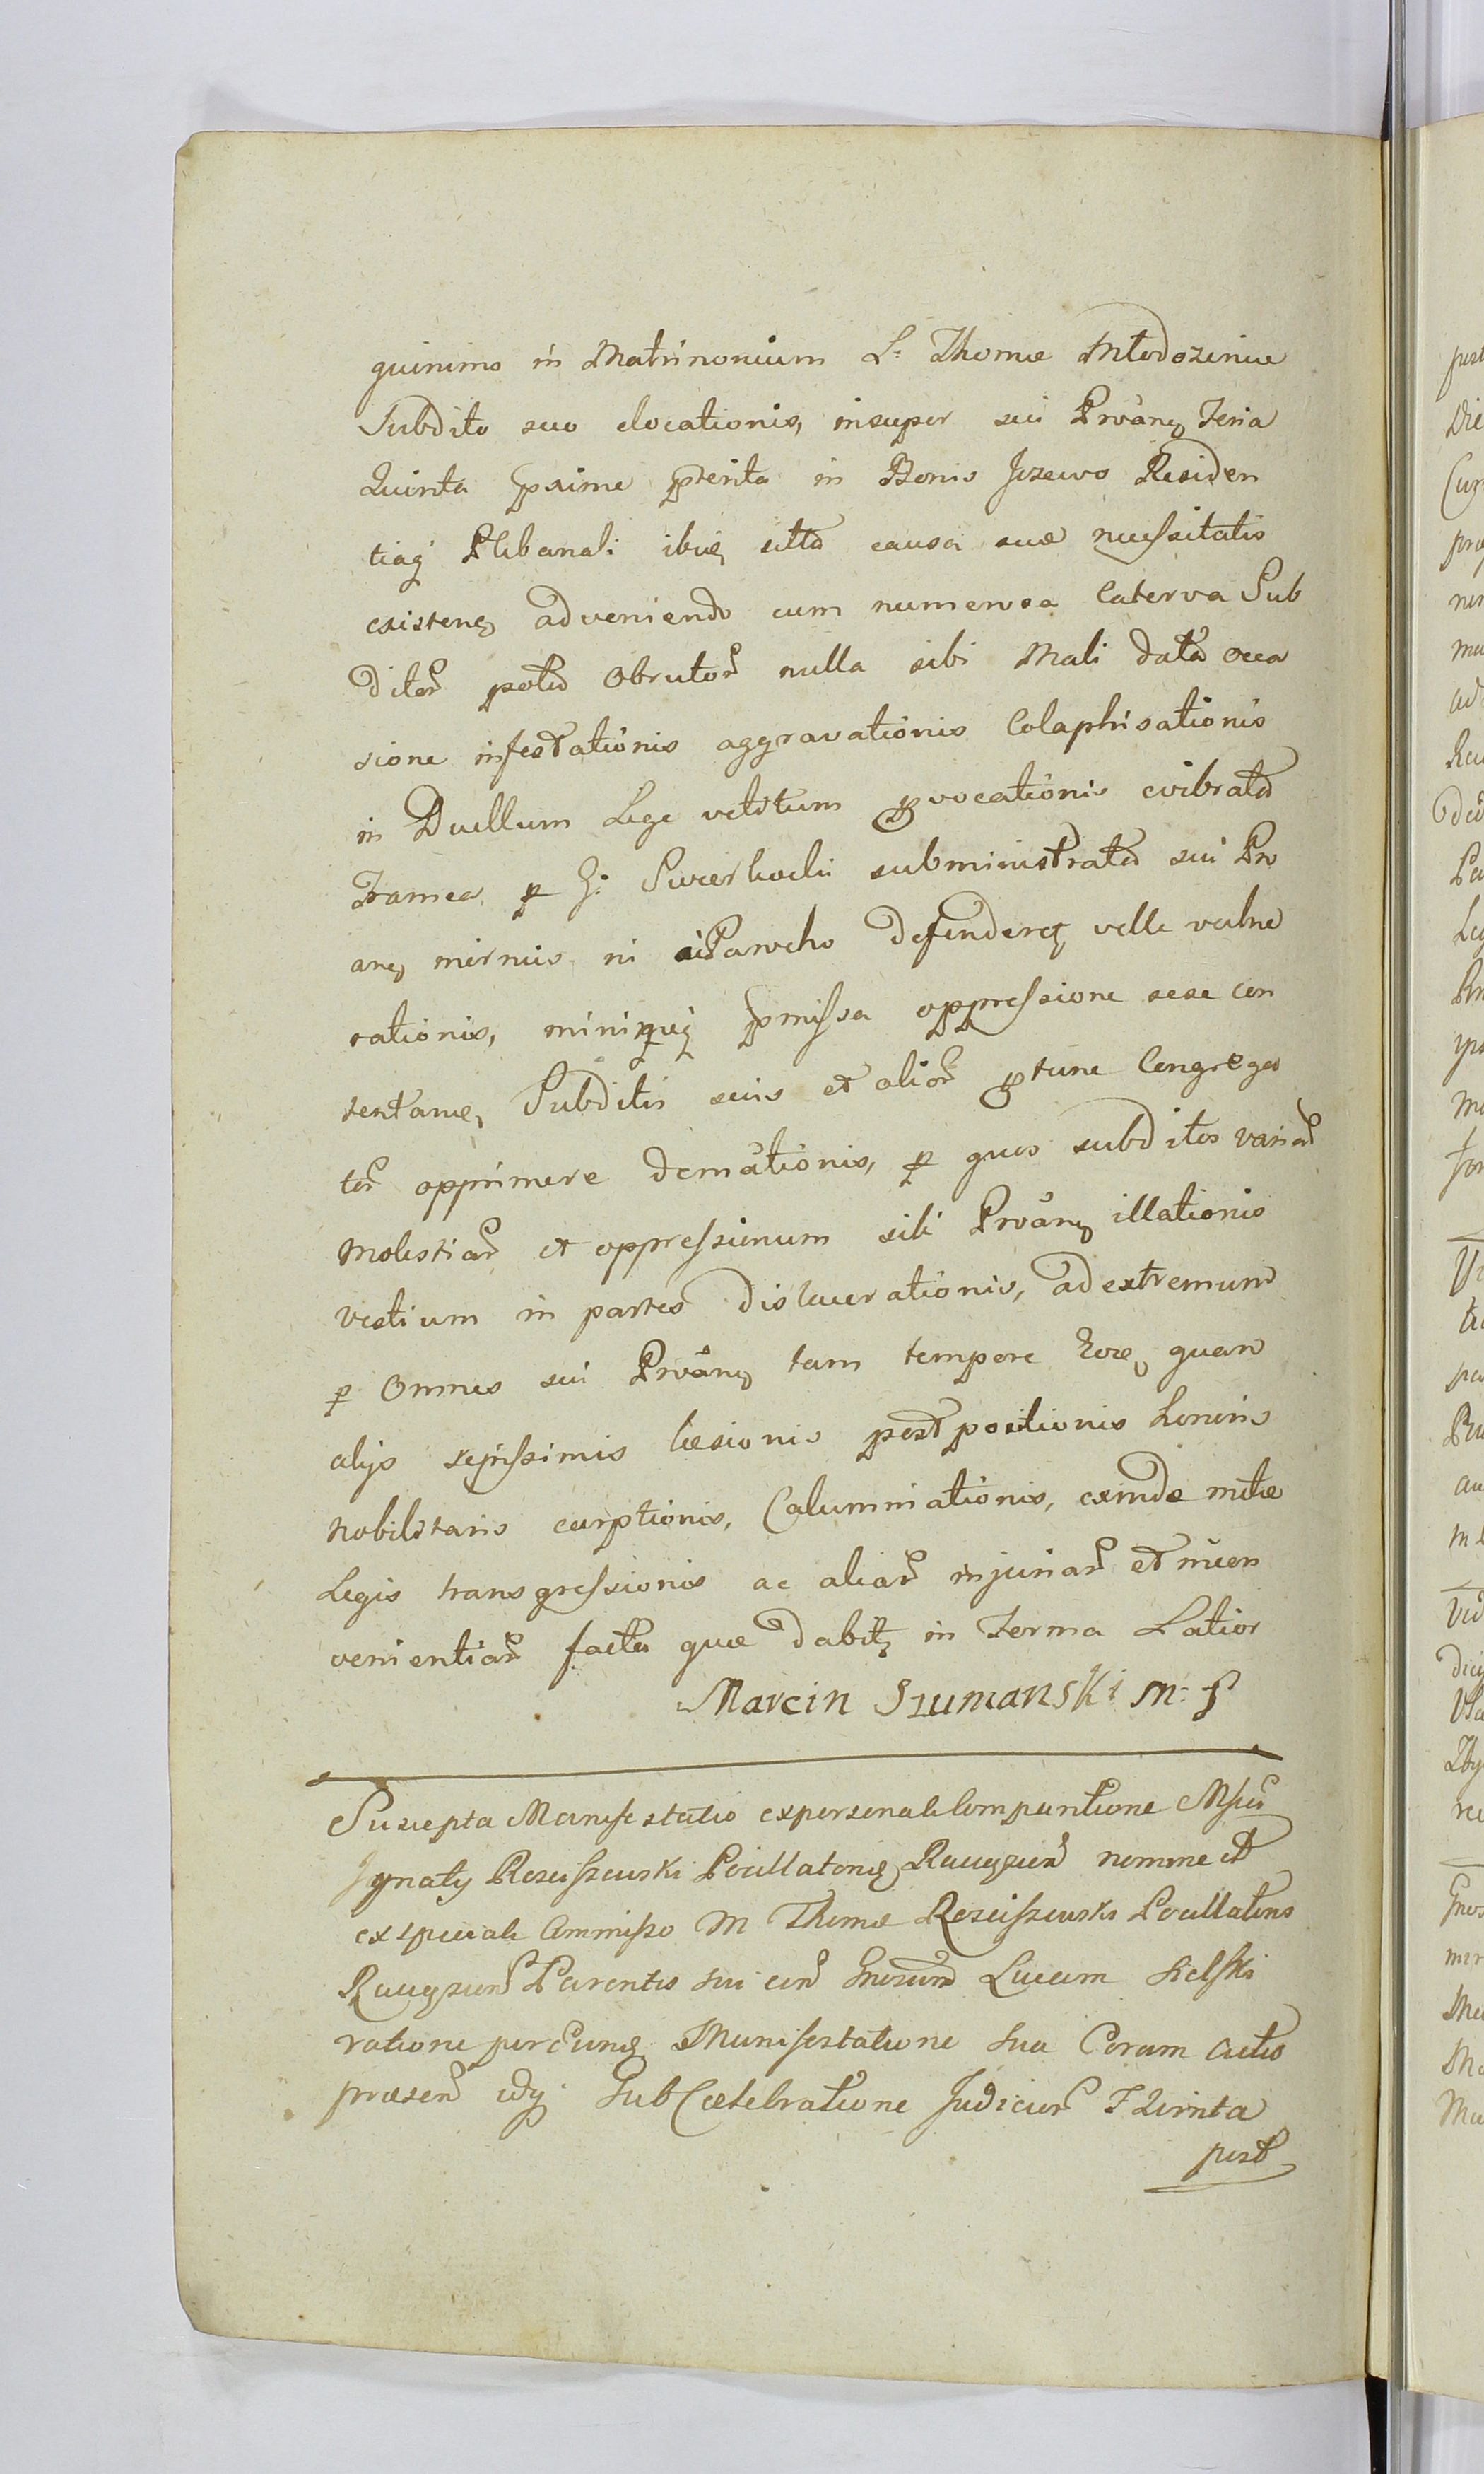 quinimo in Matrimonium L: Thomæ Młodozeniæ
Subdito suo elocationis, insuper sui Prôanq Feria
Quinta pxime pterita in Bonis Jozewo Residen
tiaq Plebanali ibiq sitta causa suæ necessitatis
existenq adveniendo cum numerosa Caterva Sub
ditor potu Obrutor nulla sibi Mali data occa
sione infestationis aggravationis Colaphisationis
in Duellum Lege vetitum pvocationis evibrata
Framea p G: Swierkocki subministrata sui Pro
anq inermis ni a Parocho defenderet velle vulne
rationis, minimeq pmissa oppressione sese con
tentanq, Subditis suis et alior ptunc Congrega
tor opprimere demationis, p quos subditos variar
Molestiar et oppressionum sibi Prôanq illationis
vestium in partes dislacerationis, ad extremum
p Omnes sui Prôanq tam tempore eoq quam
alijs sepissimis læsionis postpositionis honoris
Nobilitaris carptionis, Calumniationis, exinde mtæ
Legis transgressionis ac aliar injuriar et incon
venientiar facta quæ dabit in Terma Latior
Marcin Szumanski m: p
Suscepta Manifestatio ex personali Comparitione Msci
Ignaty Rosciszewski Pocillatoriq Raugzien nomine et
ex speciali Commisso M Thomæ Rosciszewski Pocillatoris
Raugzien Parentis sui con Gnosum Lucam Kielski
ratione Manifestatione sua Coram Actis
præsen sub Cælebratione Judicior F Quinta
post